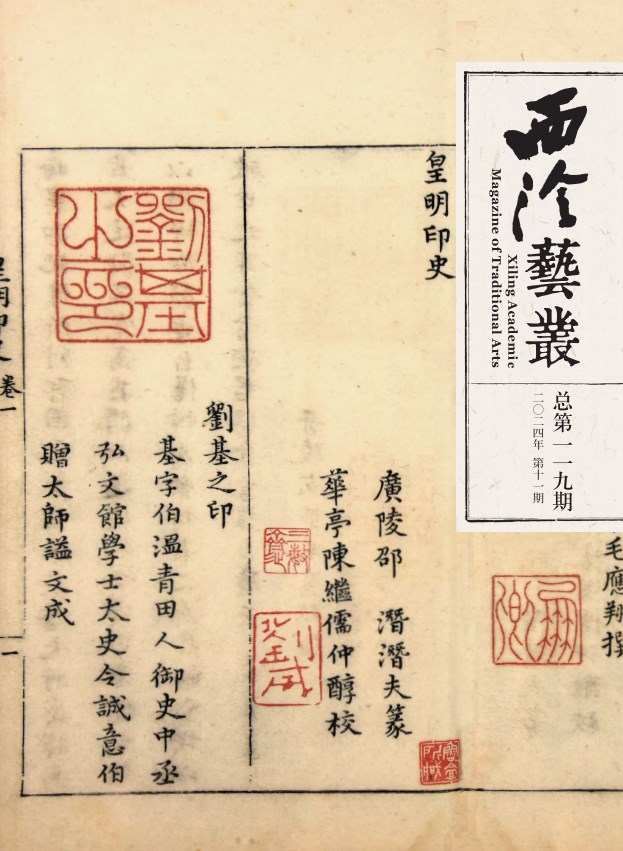 西泠藝叢
Xiling Academic
Magazine of Traditional Arts
总第一一九期
二〇二四年 第十一期
毛應翔撰
皇明印史
廣陵邵 潛潛夫篆
華亭陳繼儒仲醇校
劉基之印
劉基之印
基字伯溫青田人御史中丞
弘文館學士太史令誠意伯
贈太師謚文成
皇明印史 卷一
一